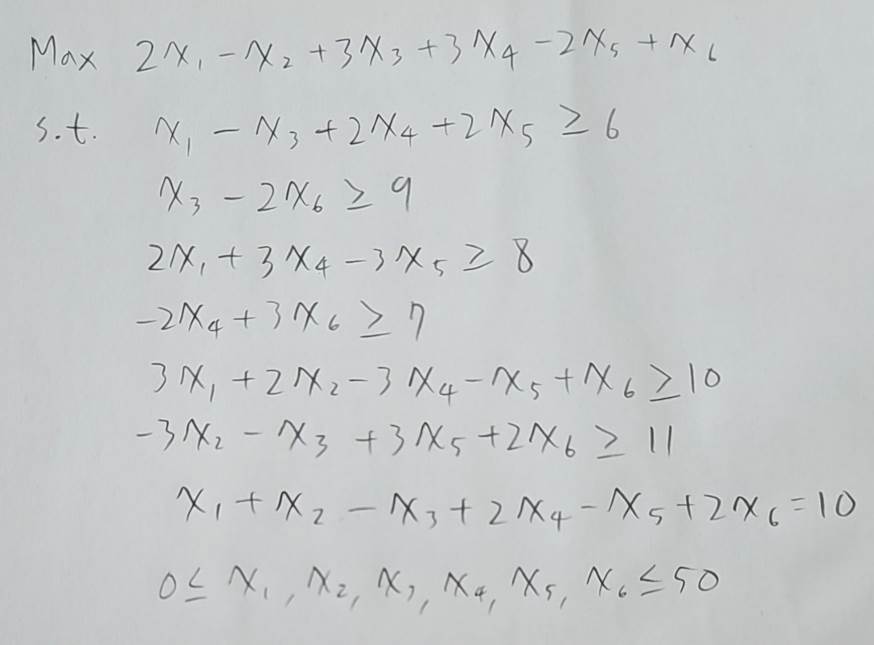 Max 2x₁ - x₂ + 3x₃ + 3x₄ - 2x₅ + x₆
s.t. x₁ - x₃ + 2x₄ + 2x₅ ≥ 6
x₃ - 2x₆ ≥ 9
2x₁ + 3x₄ - 3x₅ ≥ 8
-2x₄ + 3x₆ ≥ 7
3x₁ + 2x₂ - 3x₄ - x₅ + x₆ ≥ 10
-3x₂ - x₃ + 3x₅ + 2x₆ ≥ 11
x₁ + x₂ - x₃ + 2x₄ - x₅ + 2x₆ = 10
0 ≤ x₁, x₂, x₃, x₄, x₅, x₆ ≤ 50